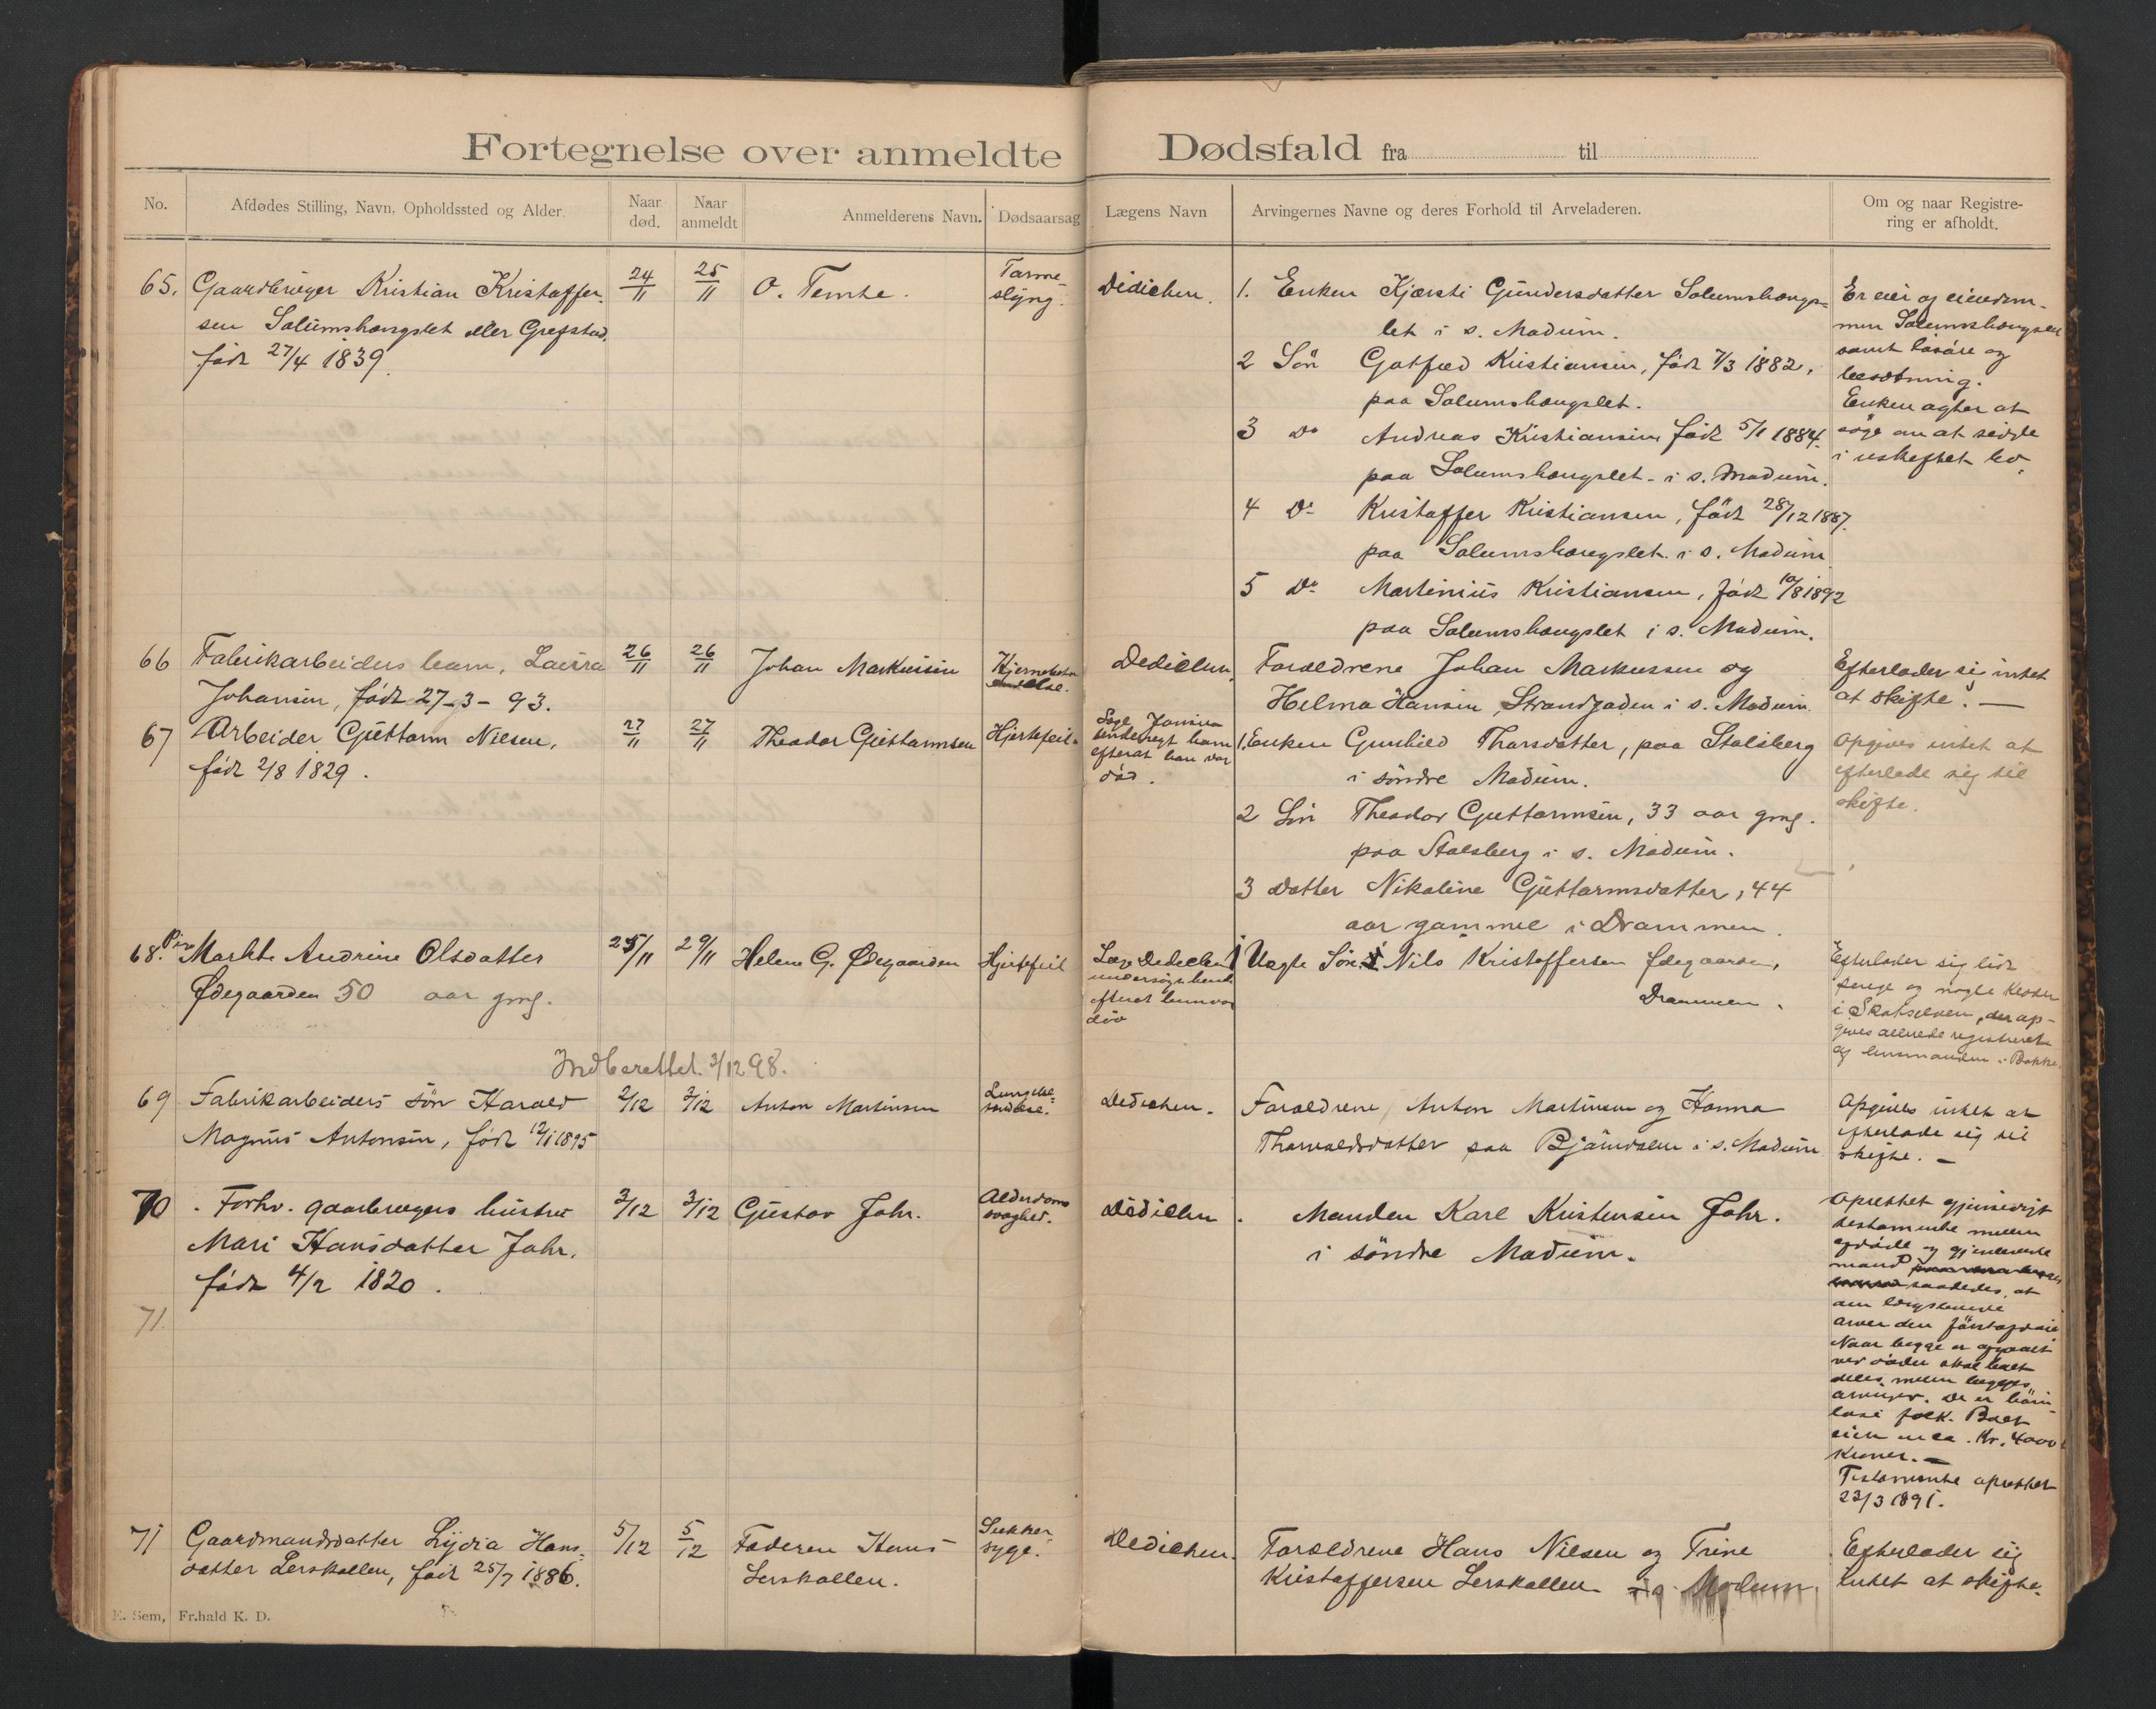 Fortegnelse over anmeldte Dødsfald fra til
No.
Afdødes Stilling, Navn, Opholdssted og Alder.
Naar død.
Naar anmeldt
Anmelderens Navn.
Dødsaarsag
Lægens Navn
Arvingernes Navne og deres Forhold til Arveladeren.
Om og naar Registre-
ring er afholdt.
65. Gaardbruger Kristian Kristoffer-
sen Solumshaugslet eller Grefstad,
født 27/4 1839.
24/11
25/11
O. Temte.
Tarme-
slyng.
Didichen.
1. Enken Kjersti Gundersdatter Solumshaugs-
let i s. Modum.
2 Søn Gotfred Kristiansen, født 7/3 1882,
paa Solumshaugslet.
3 Do Andreas Kristiansen født 5/1 1884.
paa Solumshaugslet i s. Modum.
4 Do Kristoffer Kristiansen, født 28/12 1887.
paa Solumshaugslet i s. Modum
5 Do Martinius Kristiansen, født 10/8 1892
paa Solumshaugslet i s. Modum.
Er eier og eiendom-
men Solumshaugslet
samt løsøre og
besætning.
Enken agter at
søge om at sidde
i uskiftet bo.
66 Fabrikarbeiders barn, Laura
Johansen, født 27-3-93.
26/11
26/11
Johan Markussen
Dedichen.
Forældrene Johan Markussen og
Helma Hansen, Strandgaden i s. Modum.
Efterlader sig intet
at skifte. —
67 Arbeider Guttorm Nilsen,
født 2/8 1829.
27/11
27/11
Theodor Guttormsen
Hjertefeil
Læge Jonsen
undersøgt ham
efterat han var
død.
1. Enken Gunhild Thorsdatter, paa Stalsberg
i søndre Modum.
2 Søn Theodor Guttormsen, 33 aar gml.
paa Stalsberg i s. Modum.
3 Datter Nikoline Guttormsdatter, 44
aar gammel i Drammen.
Opgives intet at
efterlade sig til
skifte.
68. Pige Marthe Andrine Olsdatter
Ødegaarden 50 aar gml.
25/11
29/11
Helene G. Ødegaarden
Hjertefeil
Læge Dedichen
undersøgt hende
efterat hun var
død
1 Uægte Søn Nils Kristoffersen Ødegaarden,
Drammen.
Efterlader sig lidt
penge og nogle klæder
i Skotselven, der op-
gives allerede registreret
af lensmanden i Bakke.
Indberettet 3/12 98.
69 Fabrikarbeiders søn Harald
Magnus Antonsen, født 12/1 1895
2/12
3/12
Anton Martinsen
Lungebe-
tændelse.
Dedichen.
Forældrene, Anton Martinsen og Hanna
Thorvaldsdatter paa Bjørndalen i s. Modum
Opgives intet at
efterlade sig til
skifte. —
70. Forhv. gaardbrugers hustru
Mari Hansdatter Jahr,
født 4/2 1820.
3/12
3/12
Gustav Jahr.
Alderdoms
svaghed.
Dedichen.
Manden Karl Kristensen Jahr.
i søndre Modum.
Oprettet gjensidigt
testamente mellem
afdøde og gjenlevende
mand saaledes, at
den længstlevende
arver den førstafdøde
Naar begge er afgaaet
ved døden skal boet
deles mellem begges
arvinger. De er barn-
løse folk. Boet
eier en ca. Kr. 4000
Kroner. —
Testamente oprettet
23/3 1891.
71.
71 Gaardmandsdatter Lydia Hans-
datter Lerskallen, født 25/7 1886.
5/12
5/12
Faderen Hans
Lerskallen.
Sukker-
syge.
Dedichen.
Forældrene Hans Nilsen og Trine
Kristoffersen Lerskallen Modum.
Efterlader sig
intet at skifte.
E. Sem, Fr.hald K. D.